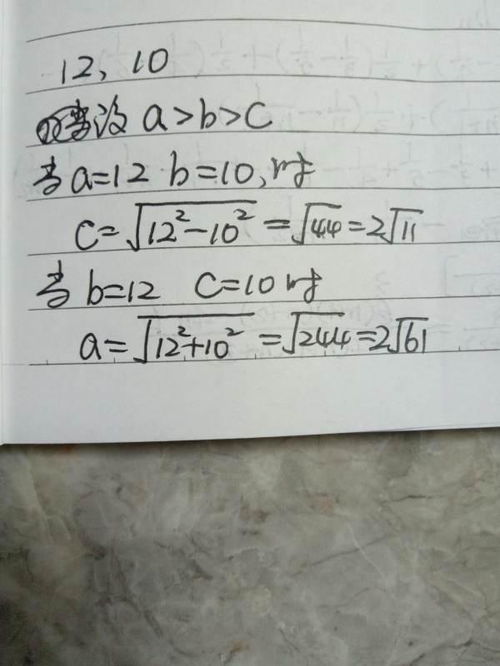 12, 10
设 a>b>c
当 a=12 b=10,时
c=√(12²-10²)=√44=2√11
当 b=12 c=10时
a=√(12²+10²)=√244=2√61